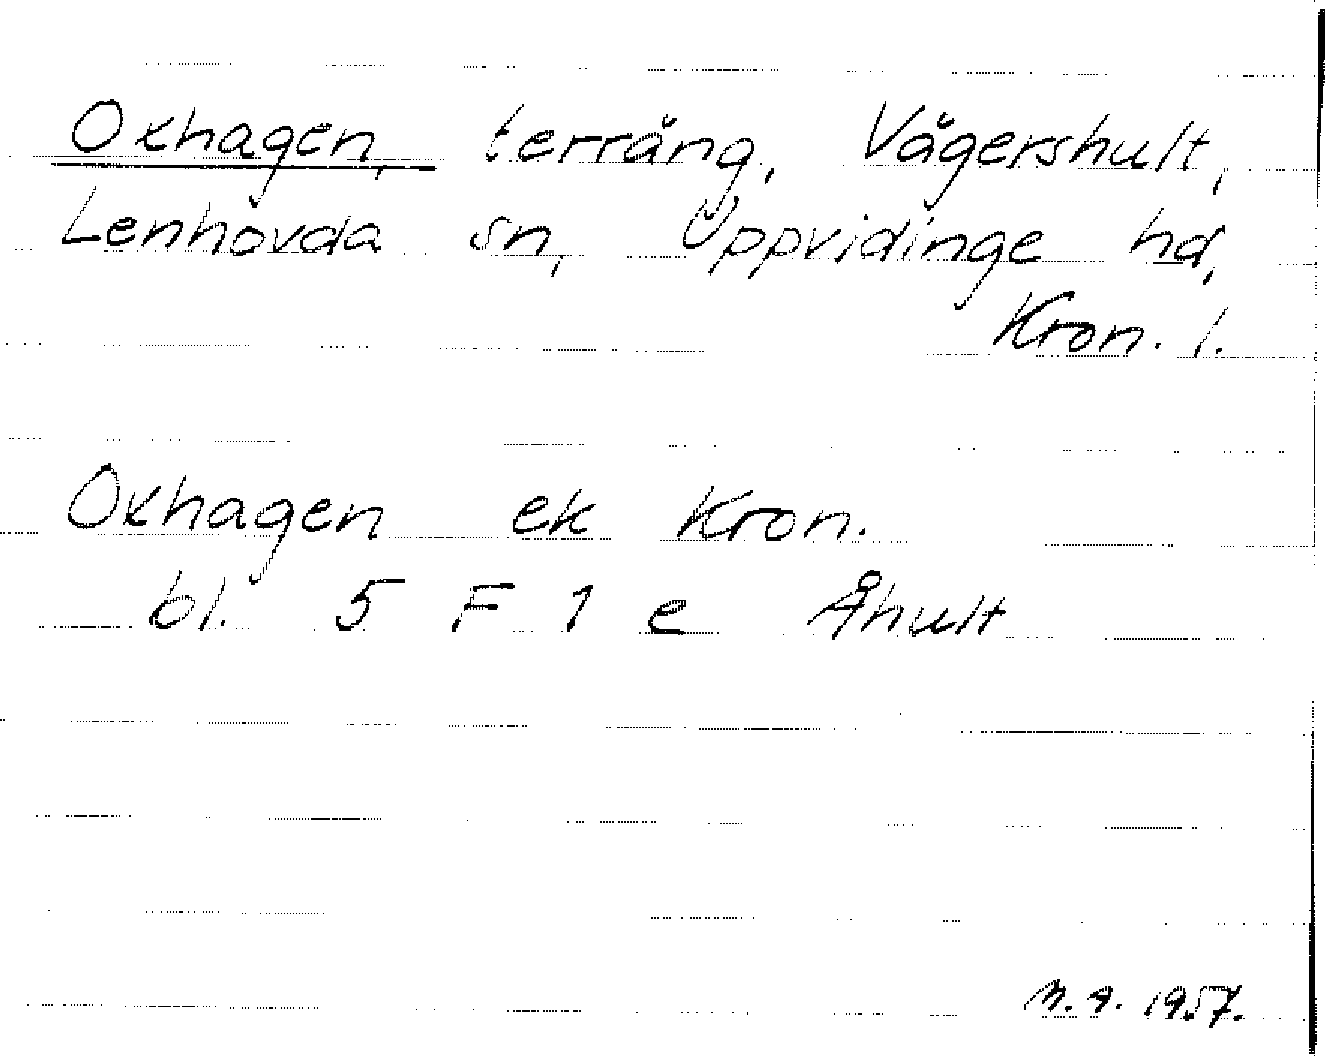 Oxhagen, terräng, Vägershult,
Lenhovda sn, Uppvidinge hd,
Kron. l.
Oxhagen ek Kron.
bl. 5 F 1 e Åhult
M. A. 1957.